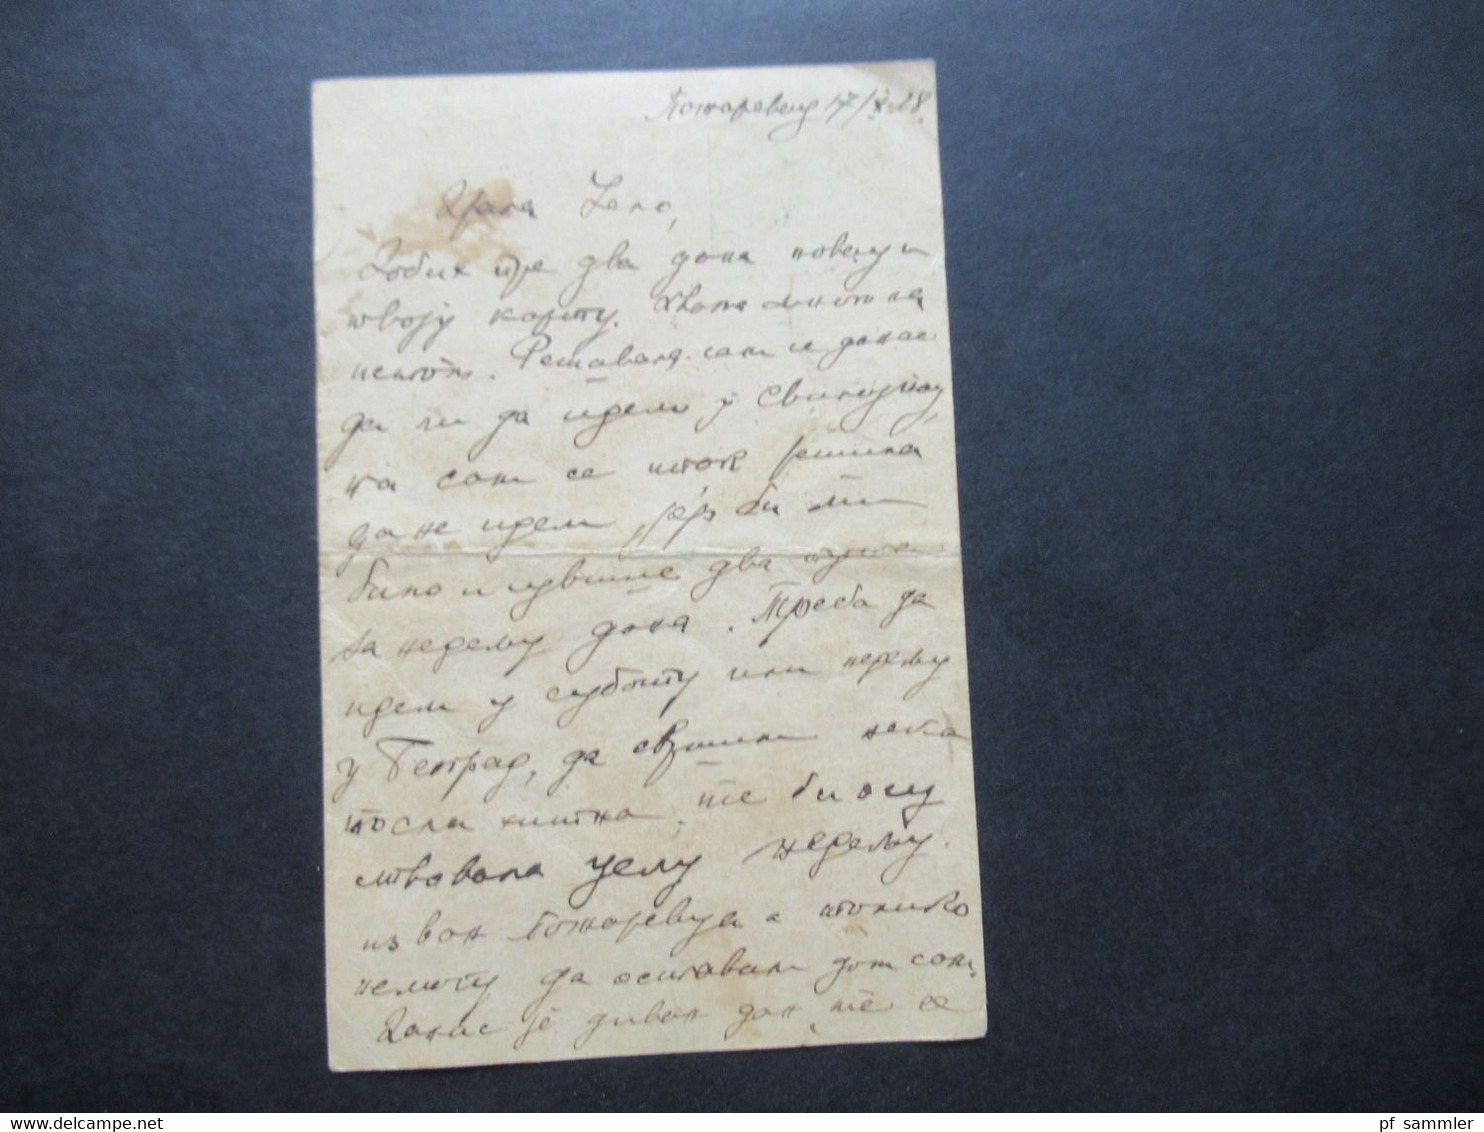 Пожаревац 17/X 28.
Драга Лело,
Добих пре два дана новац и
твоју карту. Хвала много на
Решавала сам се данас
да ли да идем у Свилајнац,
па сам се решила
да не идем, јер би ми
било и сувише два пута
за недељу дана. Треба да
идем у суботу или недељу
у Београд, да свршим нека
посла хитна, те би
целу недељу
из ван Пожаревца а толико
немогу да остављам дом сам.
Данас је диван дан, те се
pf sammler
delcampe.net